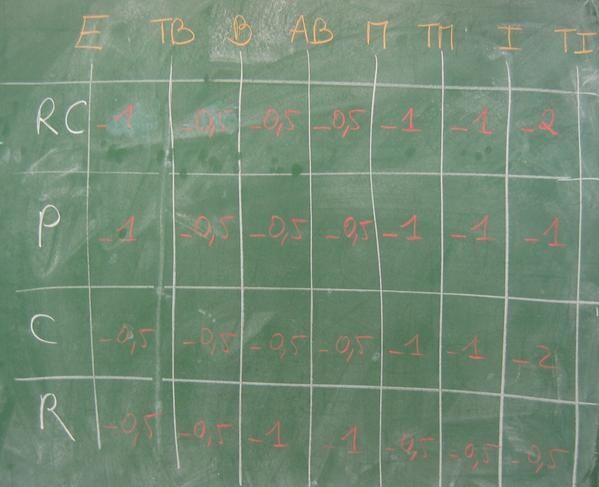 E TB B AB П ТП I TI
RC -1 -0,5 -0,5 -0,5 -1 -1 -2
P -1 -0,5 -0,5 -0,5 -1 -1 -1
C -0,5 -0,5 -0,5 -0,5 -1 -1 -2
R -0,5 -0,5 -1 -1 -0,5 -0,5 -0,5